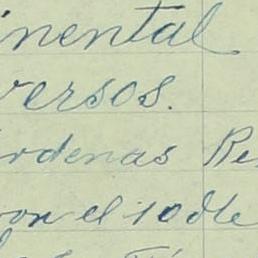 inental
versos.
rdenas Re
on el 10 de